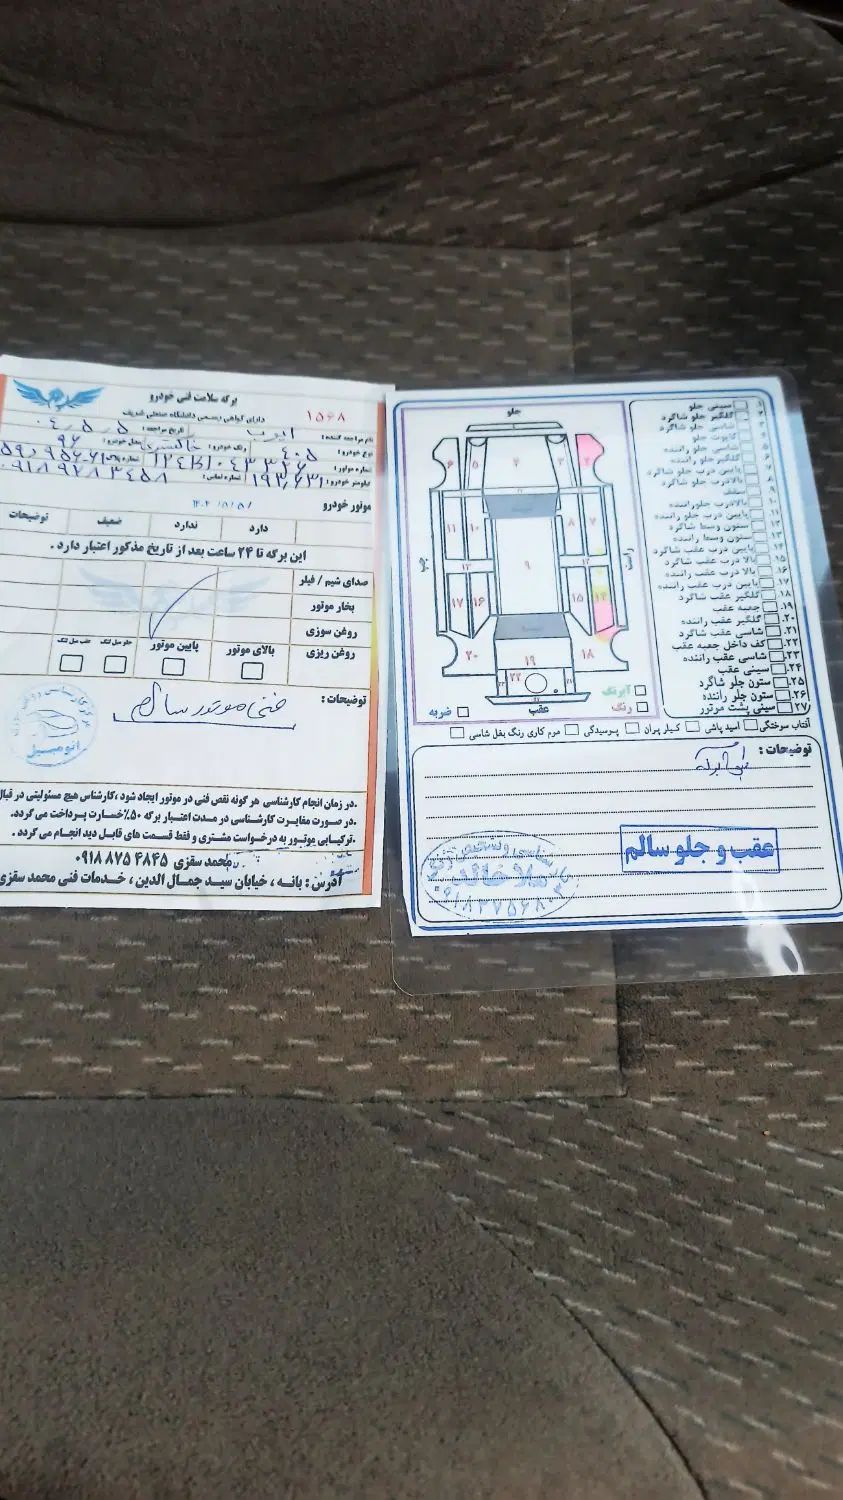 برگه سلامت فنی خودرو
دارای گواهی تخصصی دانشگاه صنعتی شریف
۱۵۶۸
نام مراجعه کننده : ایوب تاریخ مراجعه : ۰۴،۵،۵
نوع خودرو : ۴۰۵ رنگ خودرو : خاکستری مدل خودرو : ۹۶
شماره موتور :
کیلومتر خودرو : ۱۹۳,۶۳۱ شماره تماس :
موتور خودرو
دارد ندارد ضعیف توضیحات
این برگه تا ۲۴ ساعت بعد از تاریخ مذکور اعتبار دارد .
صدای شیم / فیلر
بخار موتور
روغن سوزی
روغن ریزی بالای موتور پایین موتور جلو میل لنگ عقب میل لنگ
توضیحات :
فنی موتور سالم
.در زمان انجام کارشناسی هر گونه نقص فنی در موتور ایجاد شود ،کارشناس هیچ مسئولیتی در قبال
.در صورت مغایرت کارشناسی در مدت اعتبار برگه ۵۰٪خسارت پرداخت می گردد.
.ترکیبابی موتور به درخواست مشتری و فقط قسمت های قابل دید انجام می گردد .
محمد سقزی ۴۸۴۵ ۸۷۵ ۰۹۱۸
آدرس : بانه ، خیابان سید جمال الدین ، خدمات فنی محمد سقزی
جلو
۱
۲
۴
۵
۶
۷
۸
۹
۱۰
۱۱
۱۵
۱۶
۱۷
۱۸
۱۹
۲۰
۲۲
عقب
آبرنگ
رنگ
ضربه
۱. سینی جلو
گلگیر جلو شاگرد
شاسی جلو شاگرد
کاپوت جلو
شاسی جلو راننده
گلگیر جلو راننده
پایین درب جلو شاگرد
بالادرب جلو شاگرد
سقف
بالادرب جلوراننده
پایین درب جلو راننده
ستون وسط شاگرد
ستون وسط راننده
پایین درب عقب شاگرد
۱۵. بالا درب عقب شاگرد
۱۶. بالا درب عقب راننده
۱۷. پایین درب عقب راننده
۱۸. گلگیر عقب شاگرد
۱۹. جعبه عقب
۲۰. گلگیر عقب راننده
۲۱. شاسی عقب شاگرد
۲۲. کف داخل جعبه عقب
۲۳. شاسی عقب راننده
۲۴. سینی عقب
۲۵. ستون جلو شاگرد
۲۶. ستون جلو راننده
۲۷. سینی پشت مرتور
آفتاب سوختگی اسید پاشی کـیلر پران پـرسیدگی مرم کاری رنگ بغل شاسی
توضیحات :
عقب و جلو سالم